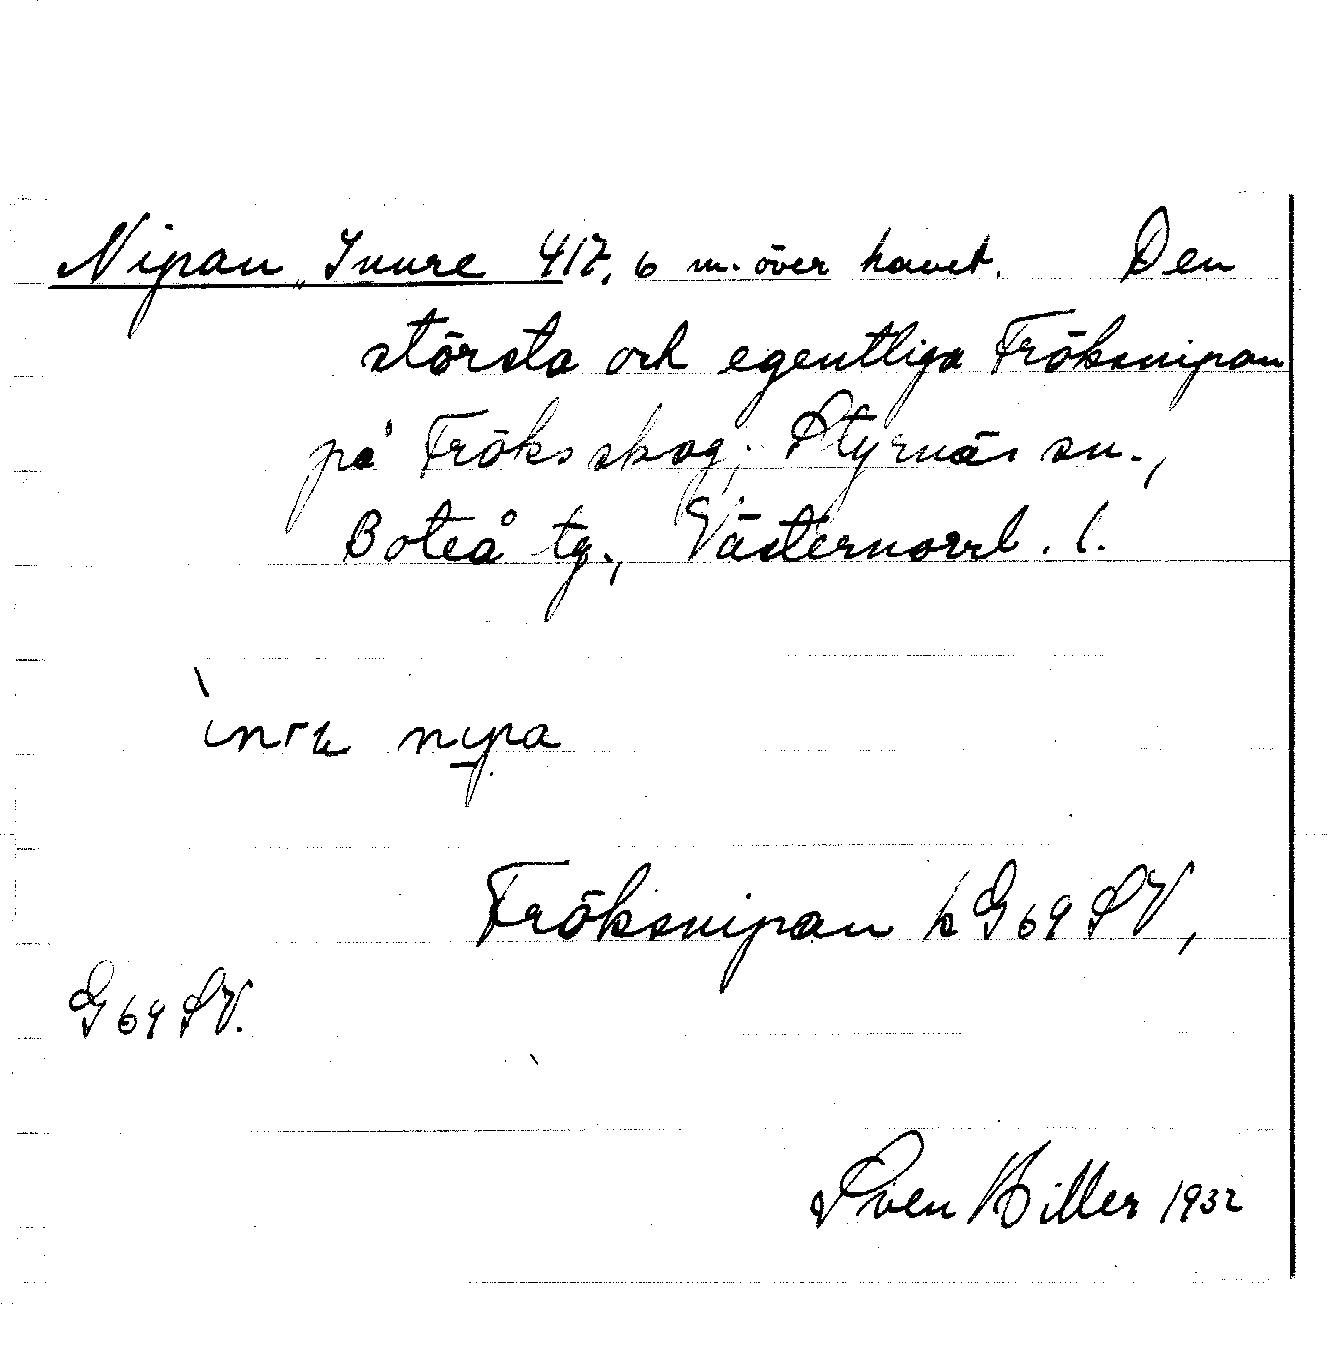 Nipan, Innre 417,6 m. över havet. Den
största och egentliga Fröksnipan
på Fröksskog, Styrnäs sn.,
Boteå tg., Västernorrl. l.
nypa
Fröksnipan k G69 SV,
G69 SV.
Sven Hiller 1932